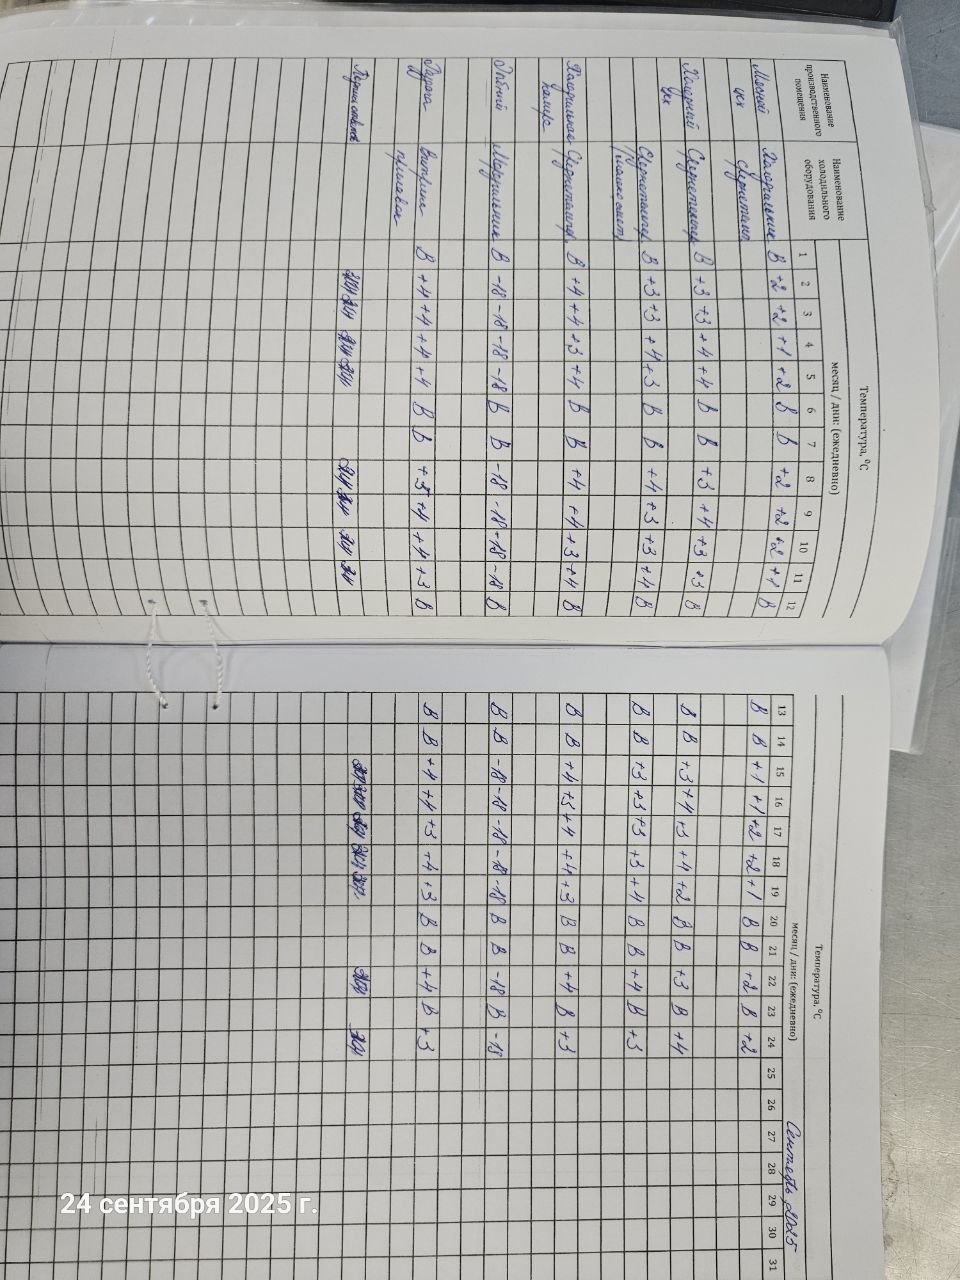 Температура, °С
месяц / дни: (ежедневно)
Наименование производственного помещения
Наименование холодильного оборудования
1 2 3 4 5 6 7 8 9 10 11 12
Мясной цех Холодильник среднетемп В +2 +2 +1 +2 В В +2 +2 +2 +1 В
Холодный цех Среднетемпер В +3 +3 +4 +4 В В +3 +4 +3 +3 В
Среднетемпер В +3 +3 +4 +3 В В +4 +3 +3 +4 В
Среднетемпер. В +4 +4 +3 +4 В В +4 +4 +3 +4 В
В -18 -18 -18 -18 В В -18 -18 -18 -18 В
Витрина В +4 +4 +4 +4 В В +3 +4 +4 +3 В
Температура, °С
месяц / дни: (ежедневно)
Сентябрь 2025
13 14 15 16 17 18 19 20 21 22 23 24 25 26 27 28 29 30 31
В В +1 +1 +2 +2 +1 В В +2 В +2
В В +3 +4 +3 +4 +2 В В +3 В +4
В В +3 +3 +3 +3 +4 В В +4 В +3
В В +4 +3 +4 +4 +3 В В +4 В +3
В В -18 -18 -18 -18 -18 В В -18 В -18
В В +4 +4 +3 +4 +3 В В +4 В +3
24 сентября 2025 г.